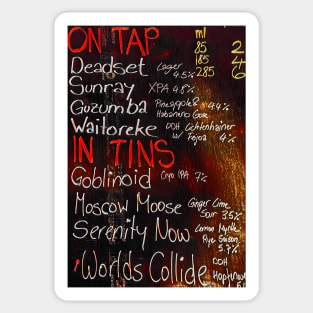 ON TAP
ml
Deadset Lager 4.5%
85 2
185 4
285 6
Sunray XPA 4.8%
Guzumba Pineapple & Habanero Gose 4.4%
Waitoreke DDH Lichtenhainer w/ Feijoa 4%
IN TINS
Goblinoid Cryo IPA 7%
Moscow Moose Ginger Lime Sour 3.5%
Serenity Now Lemon Myrtle Rye Saison 5.7%
Worlds Collide DDH